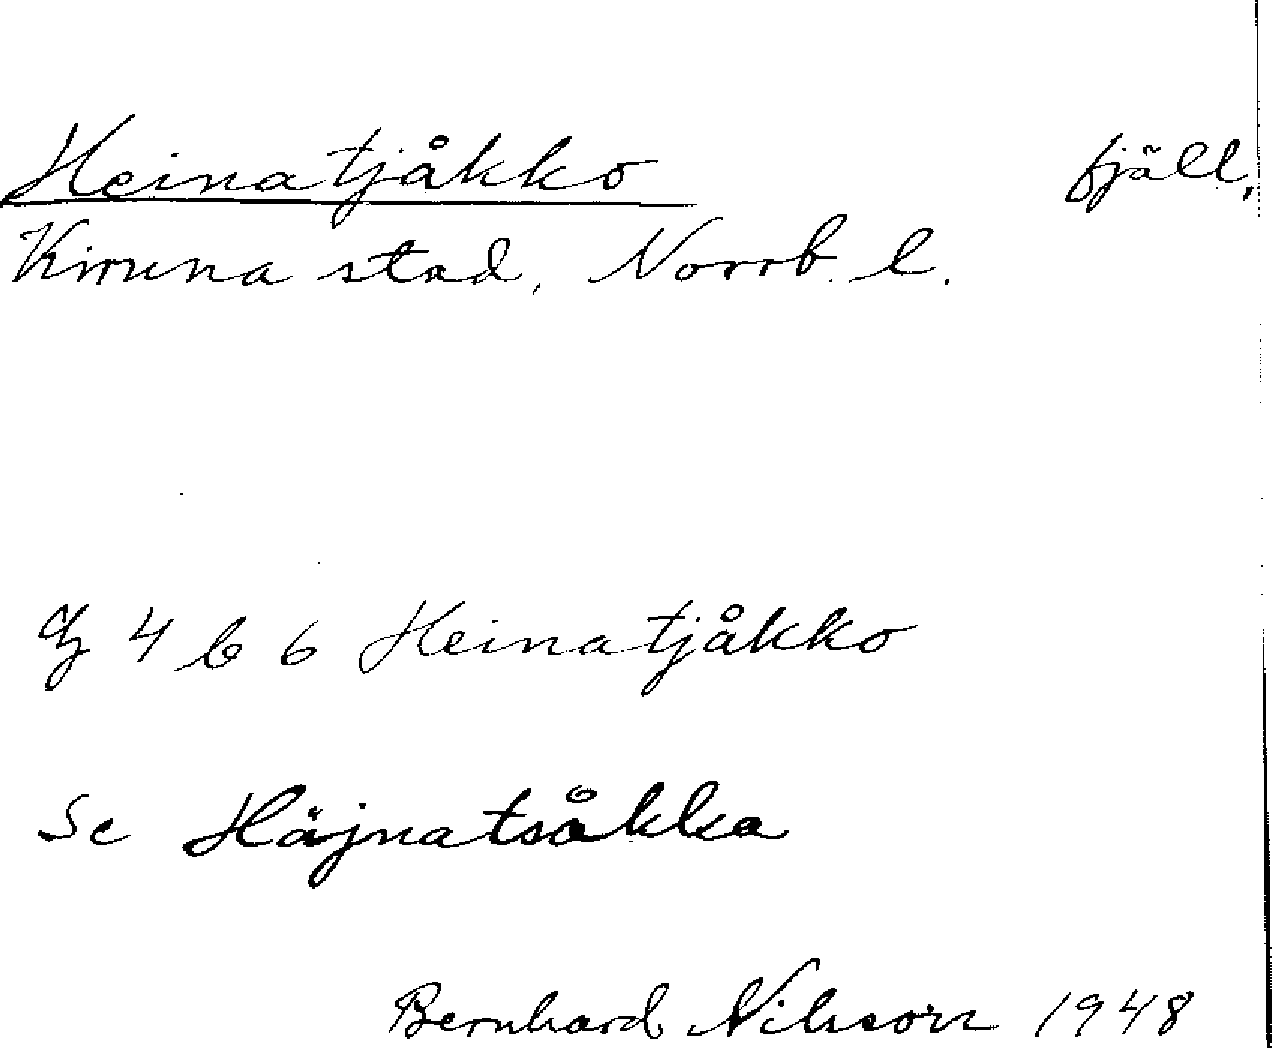 Heinatjåkko fjäll,
Kiruna stad, Norrb. l.
4 b 6 Heinatjåkko
Se Häjnatsåkka
Bernhard Nilsson 1948